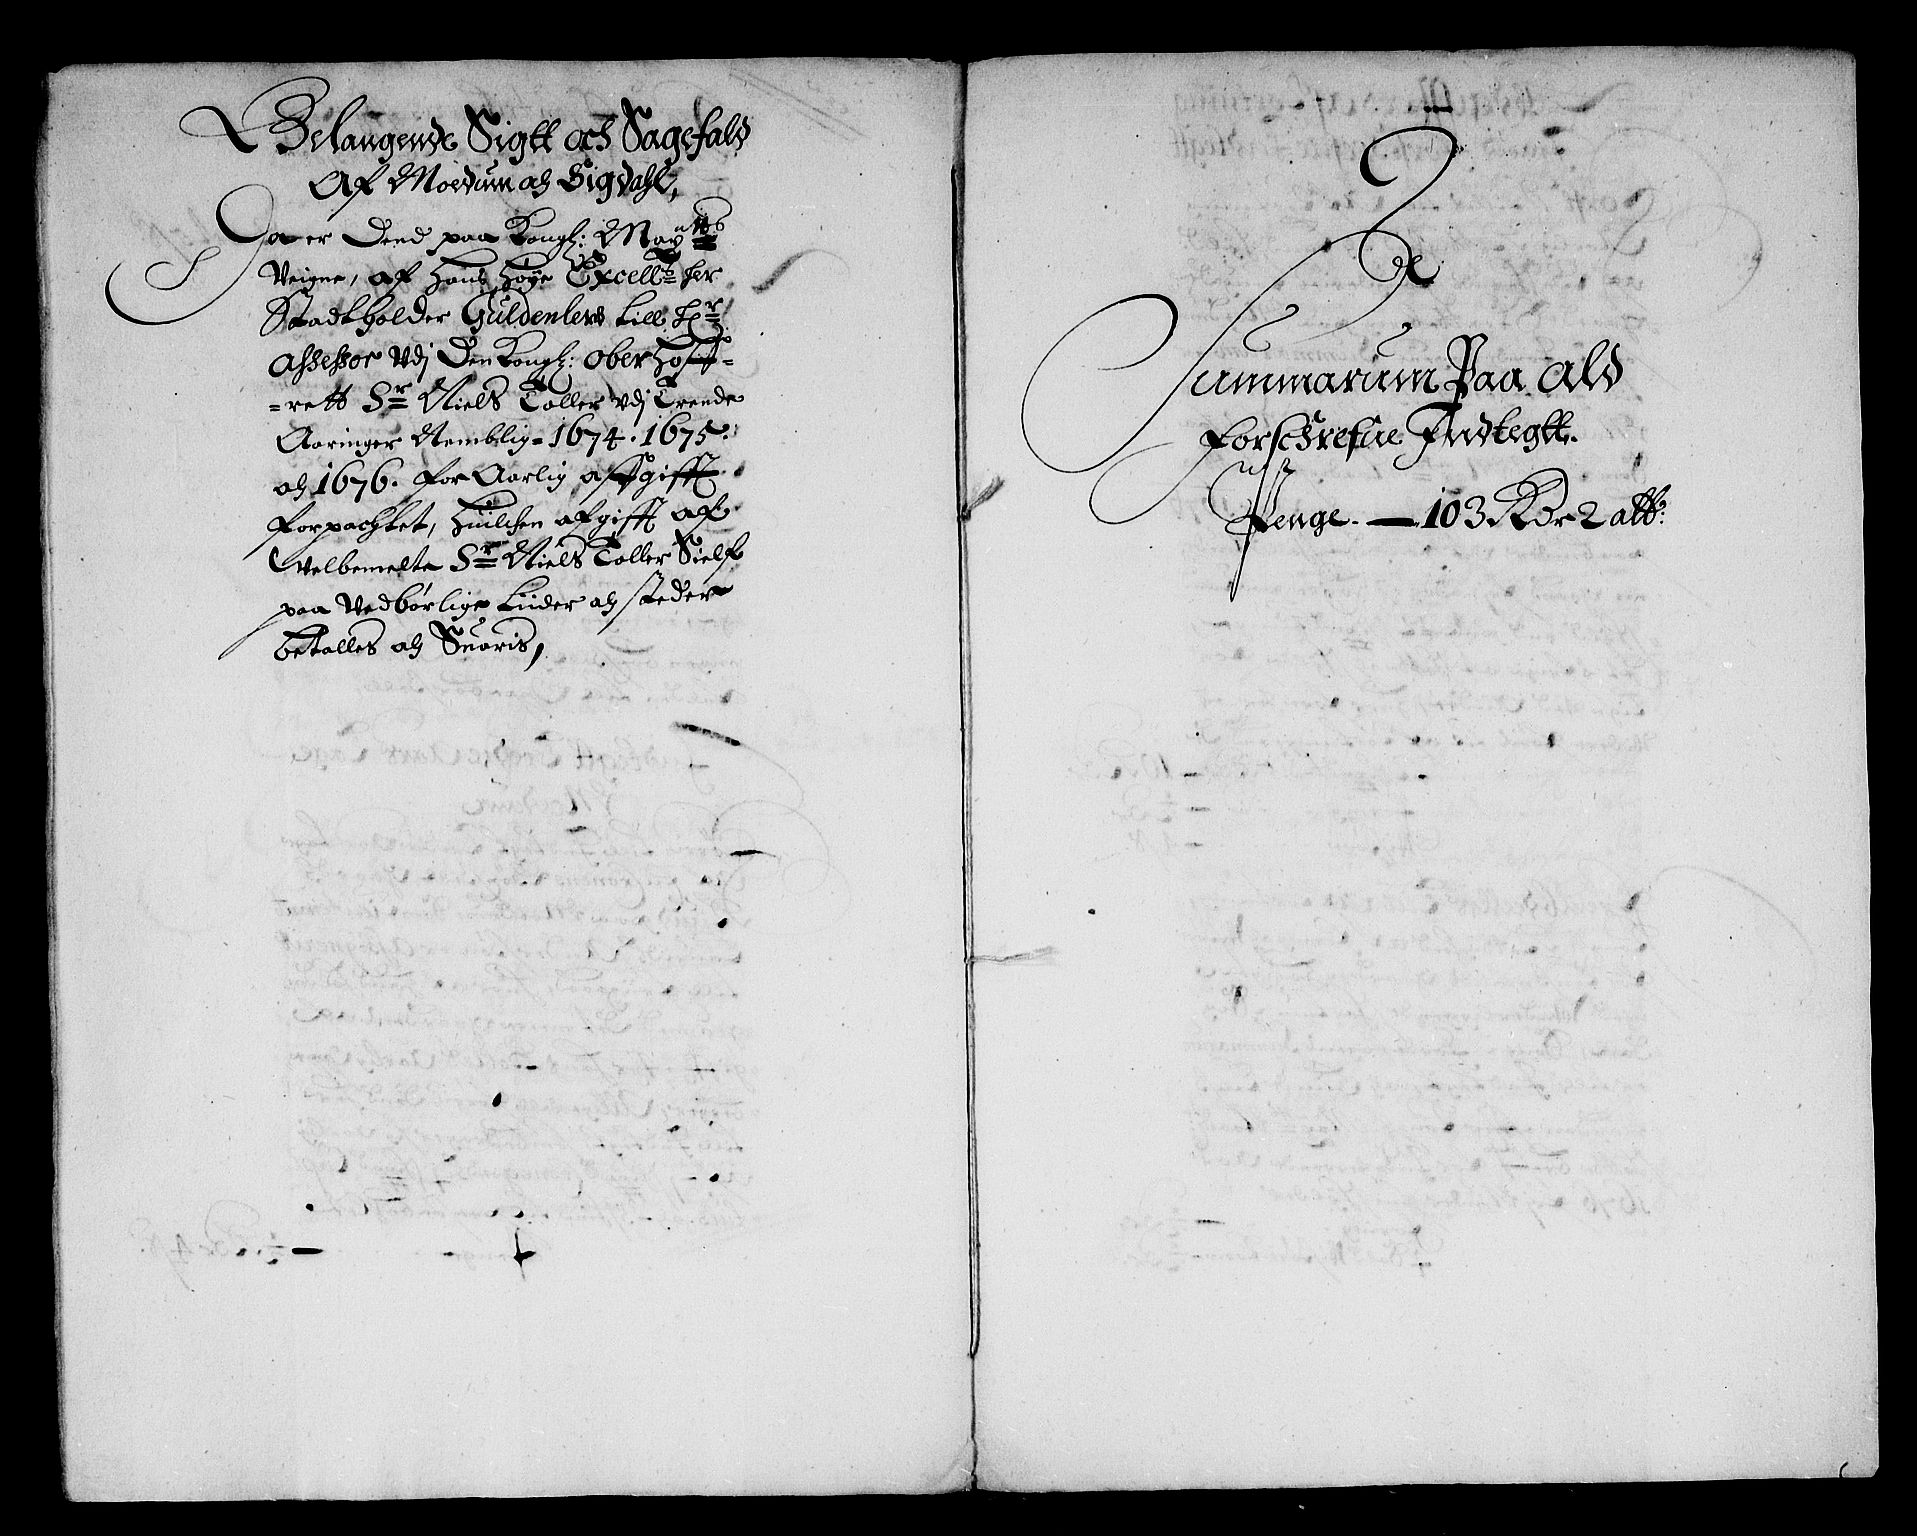 Belangende Sigtt och Sagefald
Af Moedum och Sigdahl,
Da er Dend paa Kongl: May:tts
Veigne, af Hans Høye Excell:s Her
Stadtholder Güldenlews till Hr
Assessor Vdj Den Kongl: Ober Hoff-
-rett Sr Niels Toller vdj Trende
Aaringer Nemblig 1674. 1675.
och 1676. for Aarlig affgifft
forpachtet, Huilchen afgifft af
Welbemelte Sr Niels Toller Sielf
paa Vedbørlige Tiider och steder
betalles och Suaris,
Summarum Paa Ald
forschrefne Indtegtt.
Penge. — 103 Rdr 2 alb: